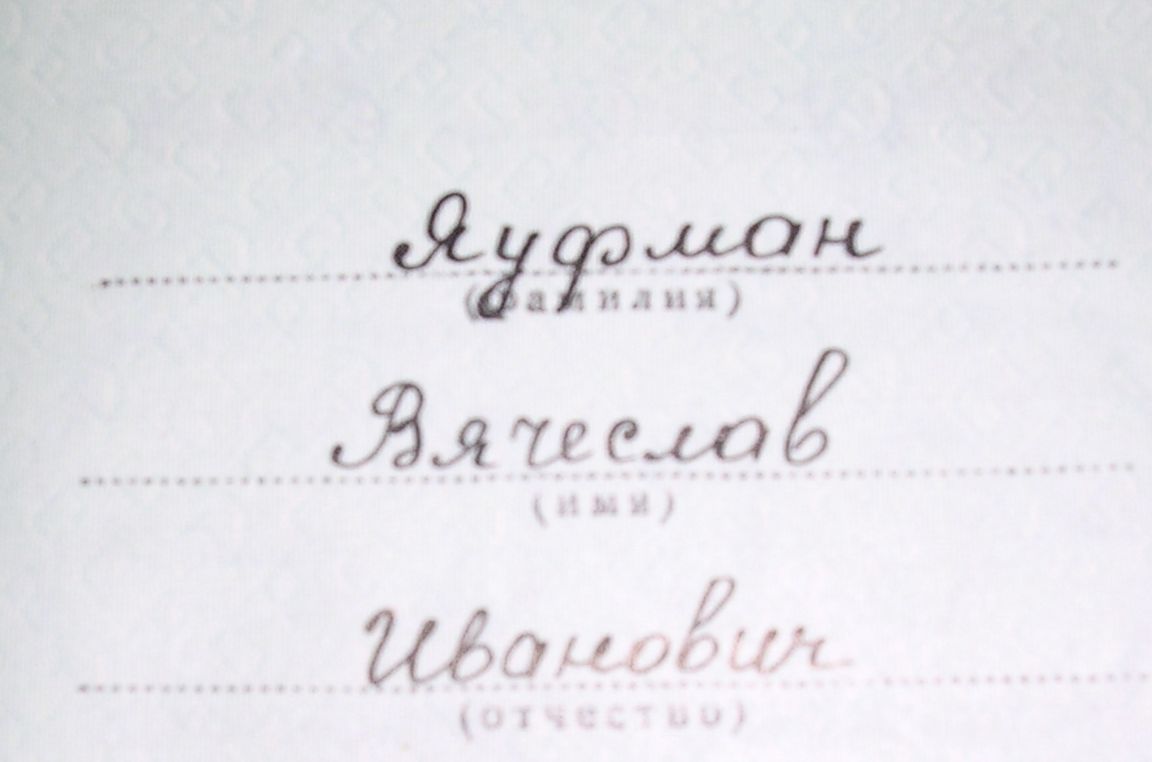 Яуфман
(фамилия)
Вячеслав
(имя)
Иванович
(отчество)